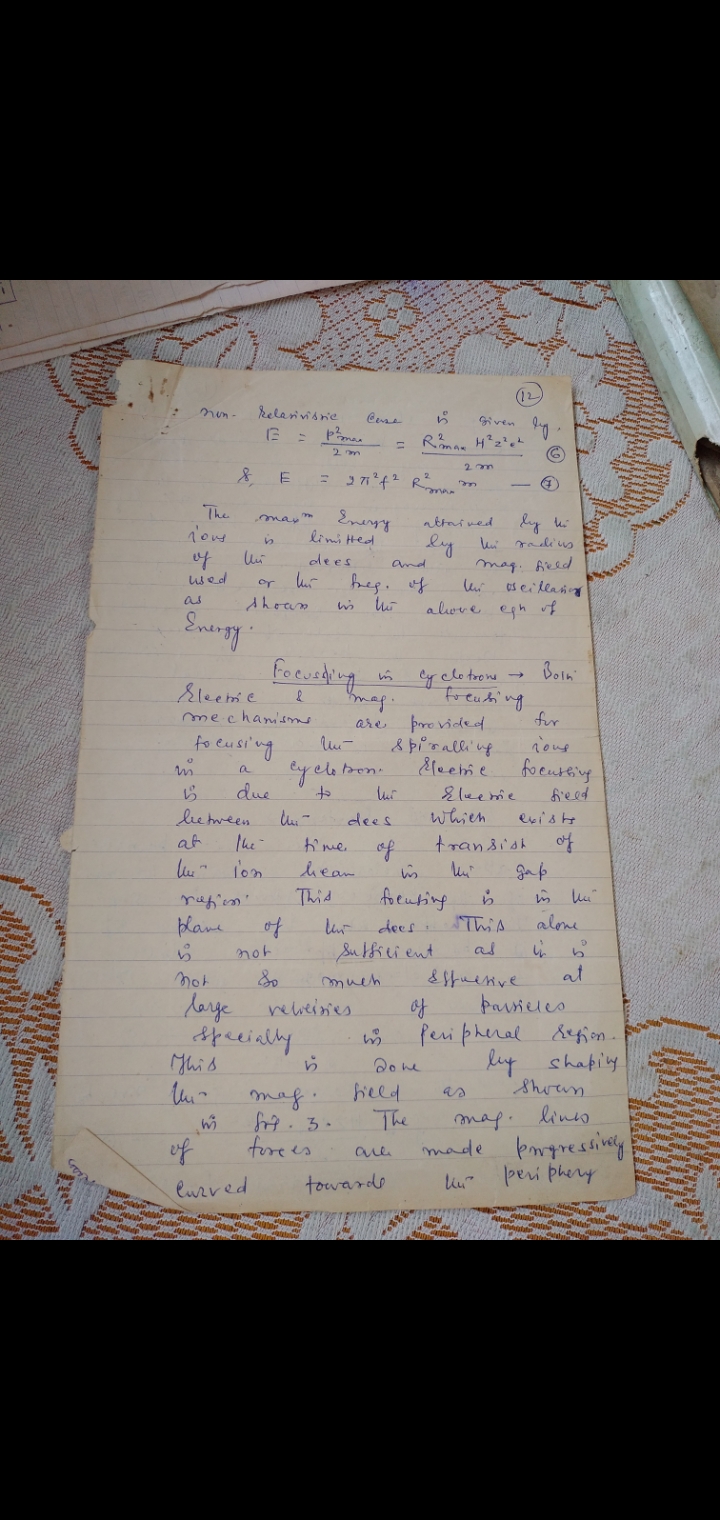 12
non-Relativistic case is given by.
E = P²max / 2m = R²max H²z²e² / 2m 6
&, E = 2π²f² R²max m — 7
The maxm Energy attained by the
ions is limitted by the radius
of the dees and mag. field
used or the freq. of the oscillation
as shown in the above eqn of
Energy.
Focussing in cyclotrons → Both
Electric & mag. focusing
mechanisms are provided for
focusing the spiralling ions
in a cyclotron. Electric focussing
is due to the Electric field
between the dees which exists
at the time of transist of
the ion beam in the gap
region. This focusing is in the
plane of the dees. This alone
is not sufficient as it is
not so much effective at
large velocities of particles
specially in peripheral region.
This is done by shaping
the mag. field as shown
in fig. 3. The mag. lines
of forces are made progressively
curved towards the periphery